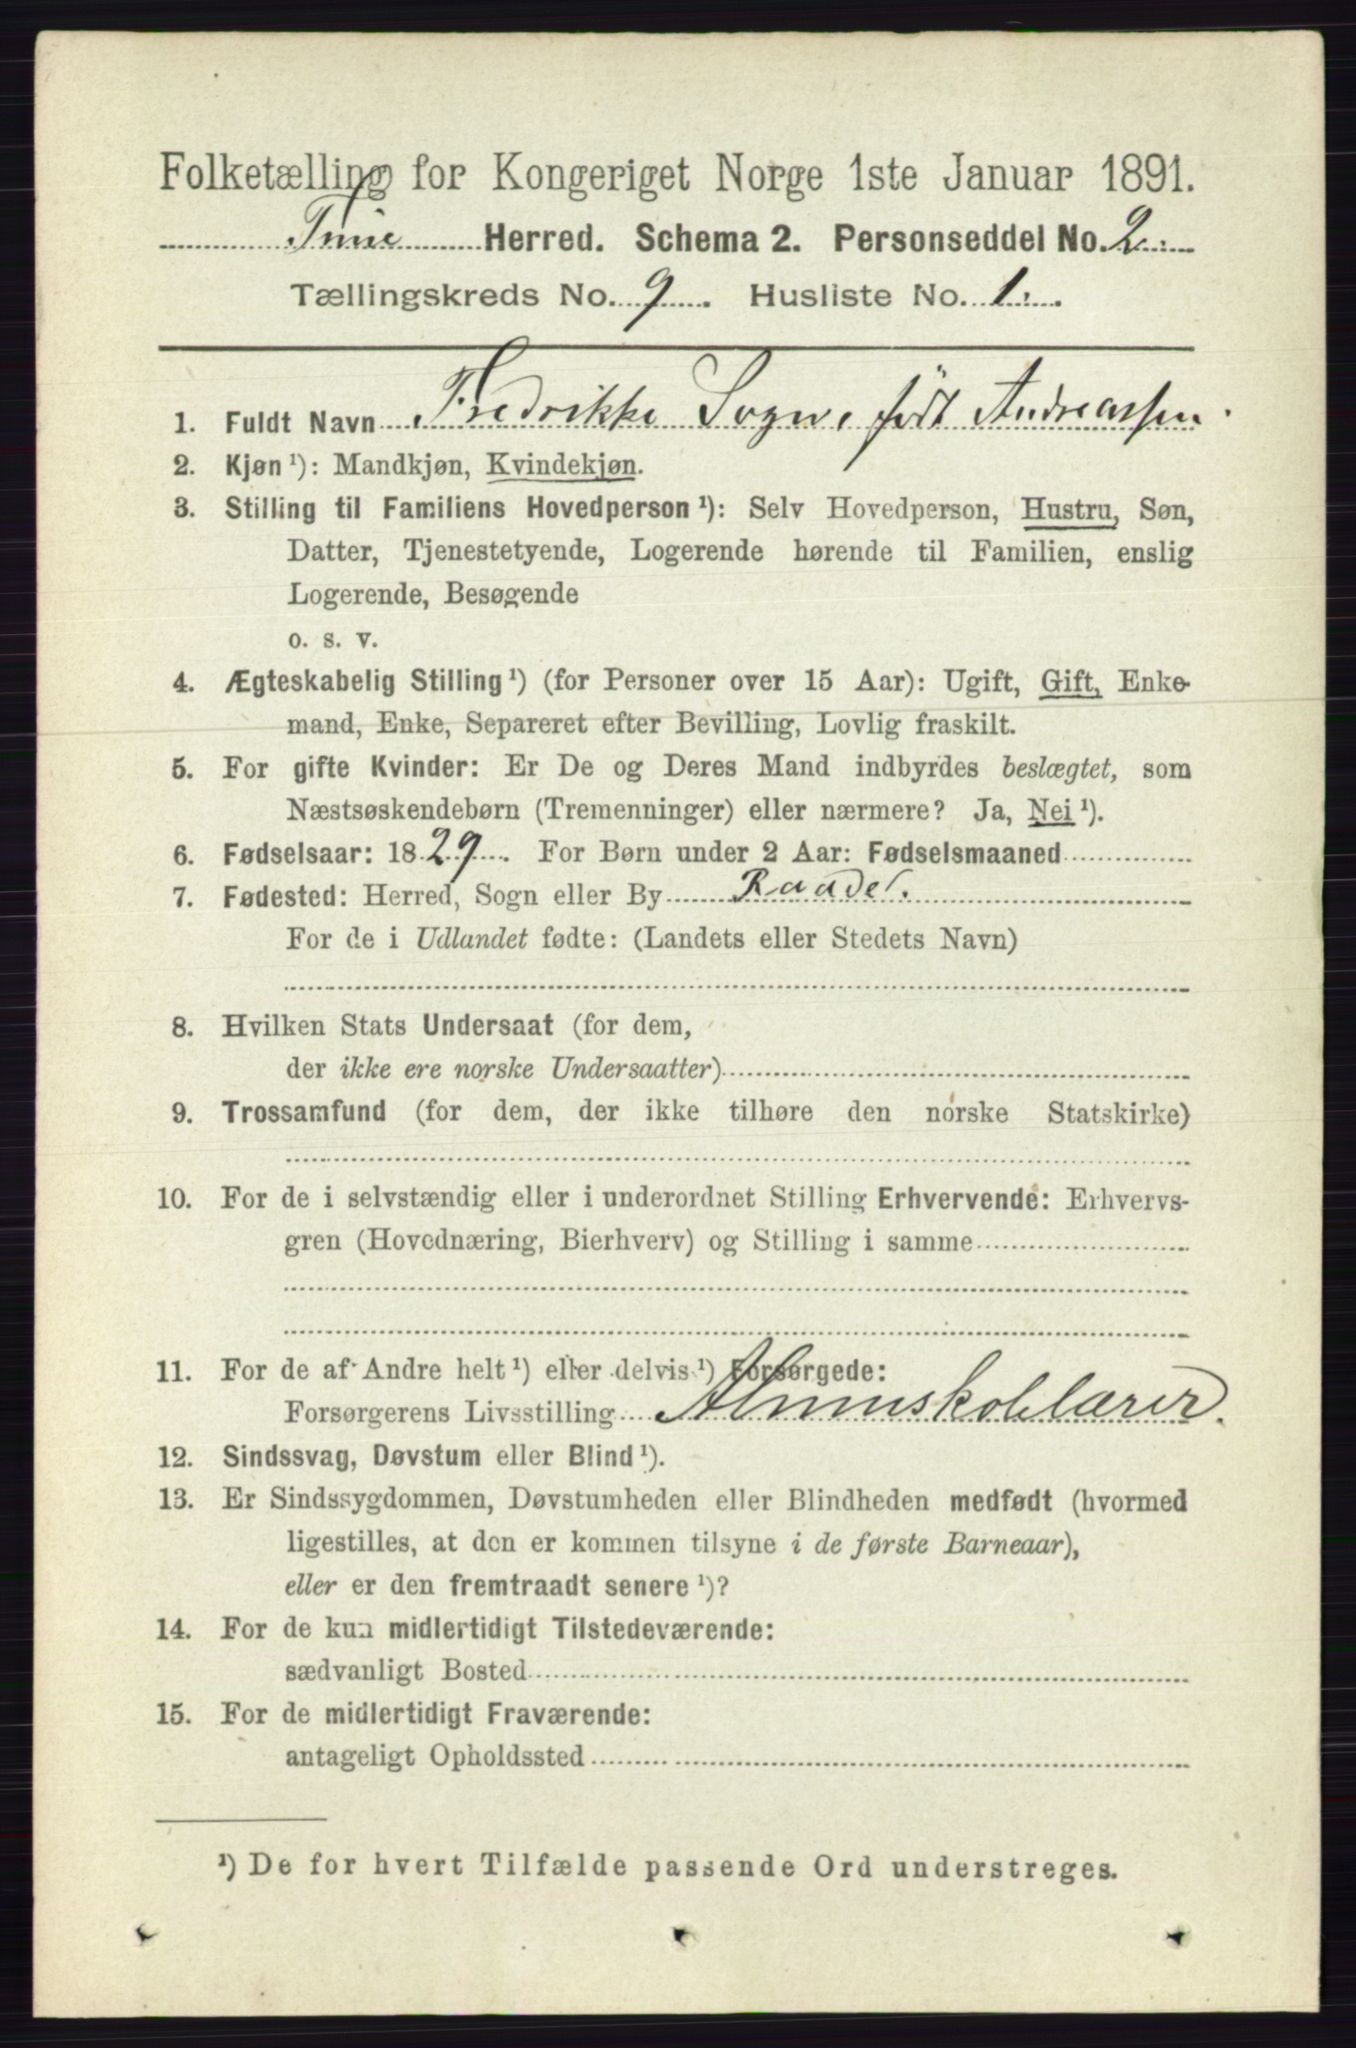 Folketælling for Kongeriget Norge 1ste Januar 1891.
Tune Herred. Schema 2. Personseddel No. 2.
Tællingskreds No. 9. Husliste No. 1.
1. Fuldt Navn Fredrikke Sogn, født Andreassen.
2. Kjøn ¹): Mandkjøn, Kvindekjøn.
3. Stilling til Familiens Hovedperson ¹): Selv Hovedperson, Hustru, Søn,
Datter, Tjenestetyende, Logerende hørende til Familien, enslig
Logerende, Besøgende
o. s. v.
4. Ægteskabelig Stilling ¹) (for Personer over 15 Aar): Ugift, Gift, Enke-
mand, Enke, Separeret efter Bevilling, Lovlig fraskilt.
5. For gifte Kvinder: Er De og Deres Mand indbyrdes beslægtet, som
Næstsøskendebørn (Tremenninger) eller nærmere? Ja, Nei ¹).
6. Fødselsaar: 1829. For Børn under 2 Aar: Fødselsmaaned
7. Fødested: Herred, Sogn eller By Raade.
For de i Udlandet fødte: (Landets eller Stedets Navn)
8. Hvilken Stats Undersaat (for dem,
der ikke ere norske Undersaatter)
9. Trossamfund (for dem, der ikke tilhøre den norske Statskirke)
10. For de i selvstændig eller i underordnet Stilling Erhvervende: Erhvervs-
gren (Hovednæring, Bierhverv) og Stilling i samme
11. For de af Andre helt ¹) eller delvis ¹) Forsørgede:
Forsørgerens Livsstilling Almuskolelærer.
12. Sindssvag, Døvstum eller Blind ¹).
13. Er Sindssygdommen, Døvstumheden eller Blindheden medfødt (hvormed
ligestilles, at den er kommen tilsyne i de første Barneaar),
eller er den fremtraadt senere ¹)?
14. For de kun midlertidigt Tilstedeværende:
sædvanligt Bosted
15. For de midlertidigt Fraværende:
antageligt Opholdssted
¹) De for hvert Tilfælde passende Ord understreges.